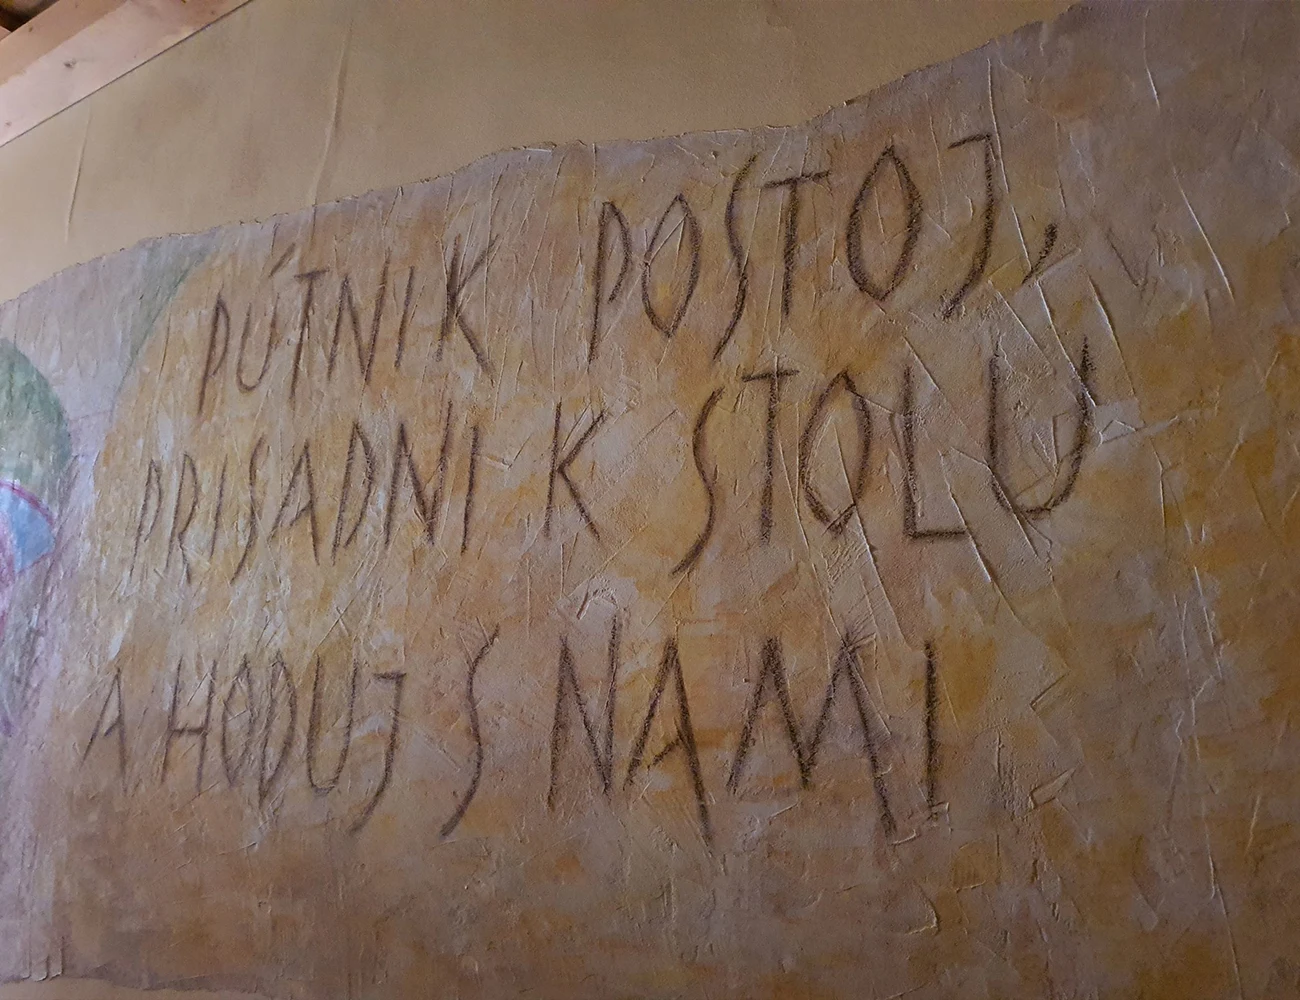 PÚTNIK POSTOJ,
PRISADNI K STOLU
A HODUJ S NAMI